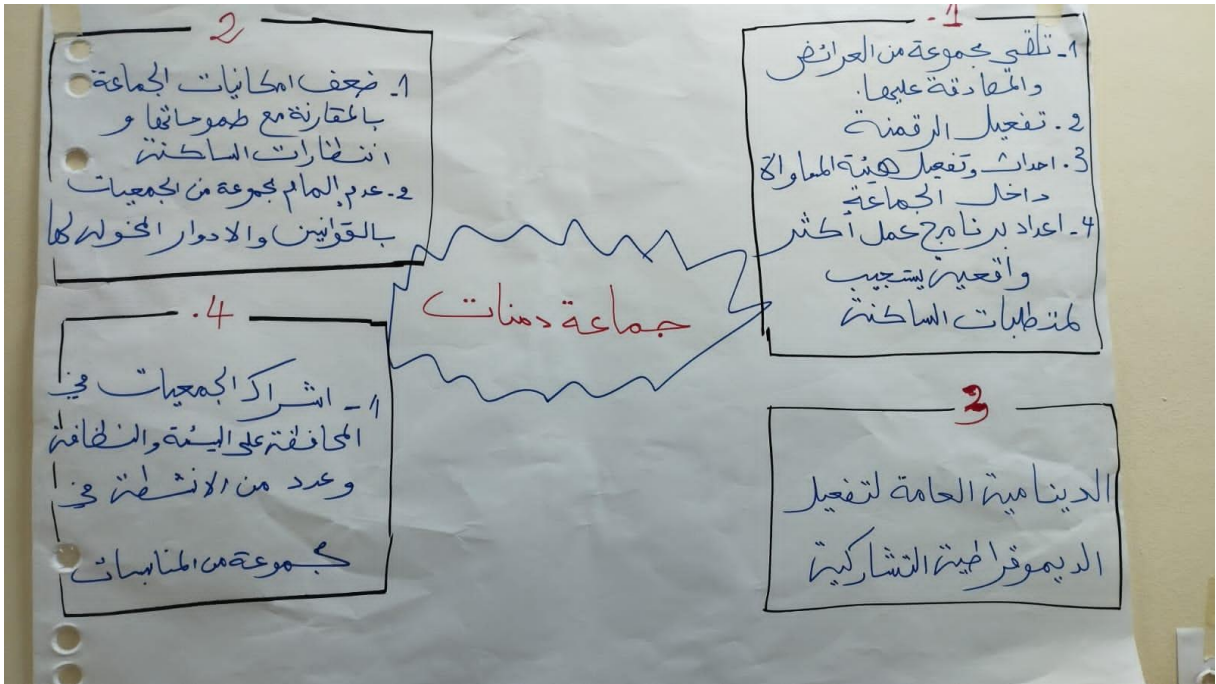 1.
1- تلقي مجموعة من العرائض
والمصادقة عليها.
2. تفعيل الرقمنة
3. احداث وتفعيل هيئة المساواة
داخل الجماعة
4- اعداد برنامج عمل أكثر
واقعية يستجيب
لمتطلبات الساكنة
2
1- ضعف امكانيات الجماعة
بالمقارنة مع طموحاتها و
انتظارات الساكنة
2- عدم إلمام مجموعة من الجمعيات
بالقوانين والادوار المخولة لها
جماعة دمنات
3
الدينامية العامة لتفعيل
الديموقراطية التشاركية
4.
1- اشراك الجمعيات في
المحافظة على البيئة والنظافة
وعدد من الانشطة في
مجموعة من المناسبات